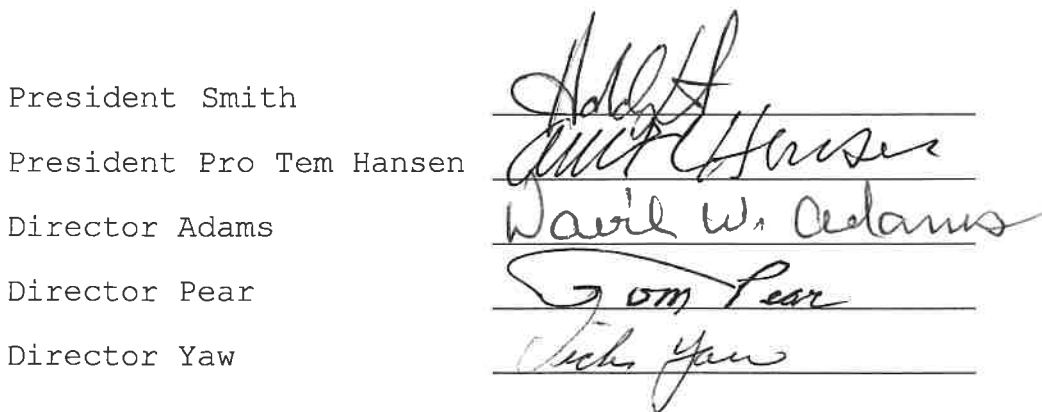 President Smith
President Pro Tem Hansen Hansen
Director Adams David W. Adams
Director Pear Tom Pear
Director Yaw Vicki Yaw